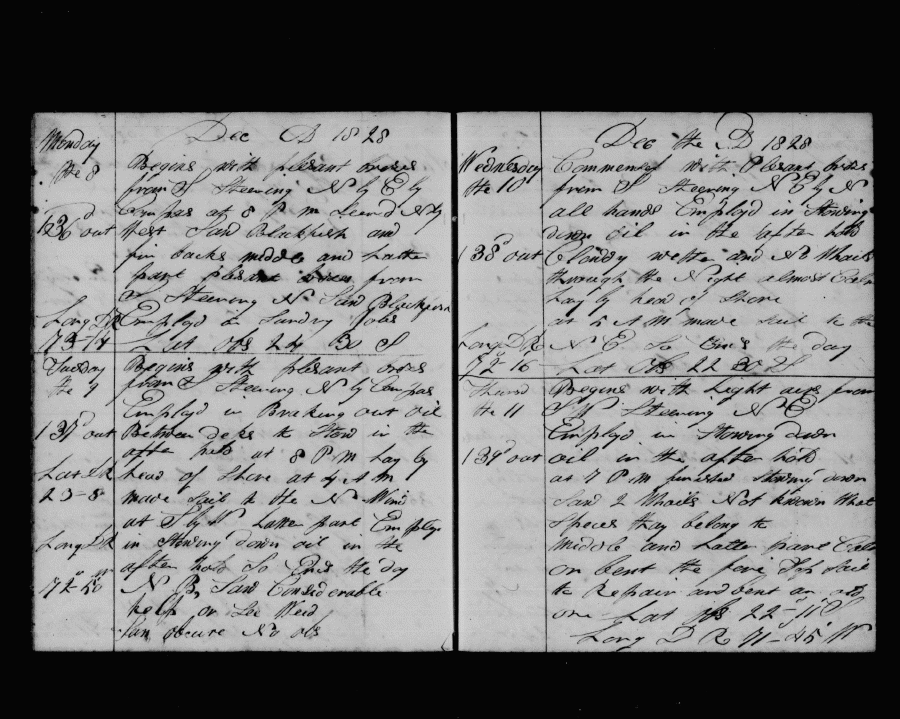 Dec AD 1828
Monday
the 8
Begins with plesant breses
from S Steering N by E by
Compas at 8 P M Steerd N by
136d out
West Saw Blackfish and
fin backs middle and Latter
part plesant breses from
S Steering N Saw Blackfish
Long D R
Employd in Sundry Jobs
73-14
Lat Obs 24 30 S
Tuesday
the 9
Begins with plesant breses
from S Steering N by Compas
Employd in Braking out Oil
137d out
Between deks to Stow in the
after hold at 8 P M Lay by
Lat D R
head of Shore at 4 A M
23-8
made Sail to the N Wind
at S by W Latter part Employd
Long D R
in Stowing down oil in the
after hold So Ends the day
72-40 W
N B Saw Considerable
kelp or Sea Weed
Sun obscure No obs
Dec the AD 1828
Wednesday
the 10
Commences with Plesant breses
from S Steering N E by N
all hands Employd in Stowing
down oil in the after hold
138d out
Cloudy wether and No Whails
through the Night almost Calm
Lay by head of Shore
at 5 A M made Sail to the
Long D R
N E So Ends the day
72-16
Lat Obs 22 30 S
Thursd
the 11
Begins with Light airs from
S W Steering N E
Employd in Stowing down
139d out
oil in the after hold
at 7 P M finished Stowing down
Saw 2 Whails Not known What
Speces thay belong to
Middle and Latter part Calm
on bent the fore Top Sail
to Repair and bent an old
one Lat obs 22-11 S
Long D R 71-45 W